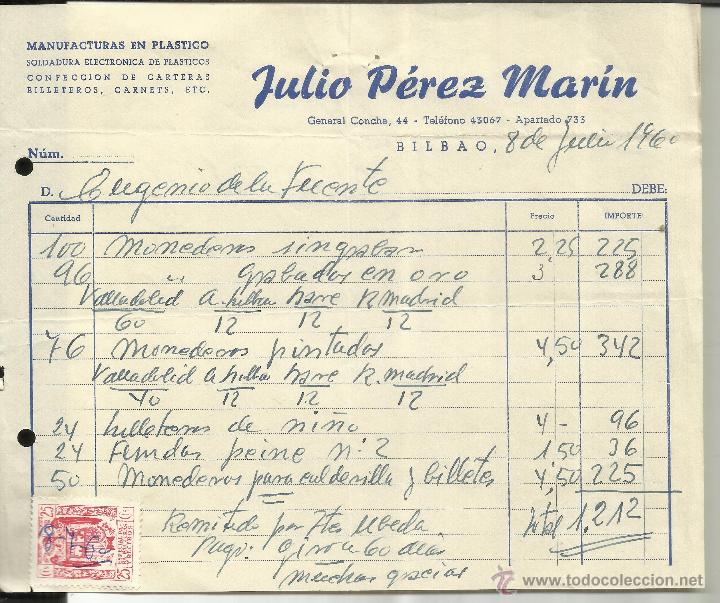 MANUFACTURAS EN PLASTICO
SOLDADURA ELECTRONICA DE PLASTICOS
CONFECCION DE CARTERAS
BILLETEROS, CARNETS, ETC.
Julio Pérez Marín
General Concha, 44 - Teléfono 43067 - Apartado 733
BILBAO, 8 de Julio 1960
Núm.
D. Eugenio de la Fuente DEBE:
Cantidad Precio IMPORTE
100 Monederos sin grabar 2,25 225
96 " grabados en oro 3 288
Valladolid R. Madrid
60 12 12 12
76 Monederos pintados 4,50 342
Valladolid R. Madrid
40 12 12 12
24 billeteros de niño 4- 96
24 Fundas peine nº 2 1,50 36
50 Monederos para calderilla y billetes 4,50 225
Remitido por Ubeda Total 1,212
Pago: Giro a 60 días
muchas gracias
8-7-60
www.todocoleccion.net